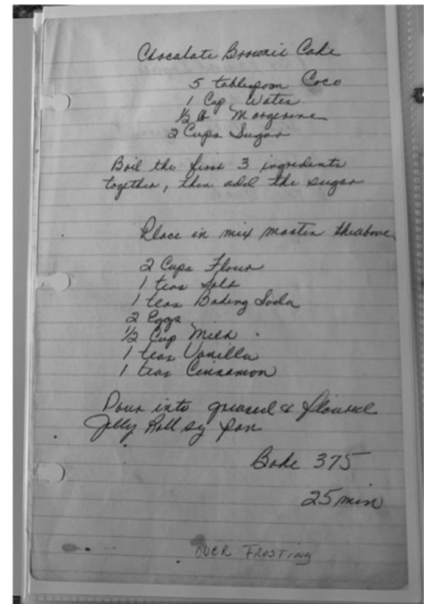 Chocalate Brownie Cake
5 tablespoon Coco
1 Cup Water
½ lb Margerine
2 Cups Sugar
Boil the first 3 ingredients
together, then add the sugar
Place in mix master the above
2 Cups Flour
1 teas Salt
1 teas Baking Soda
2 Eggs
½ Cup Milk
1 teas Vanilla
1 teas Cinnamon
Pour into greased & floured
Jelly Roll sz pan
Bake 375
25 min
OVER FROSTING